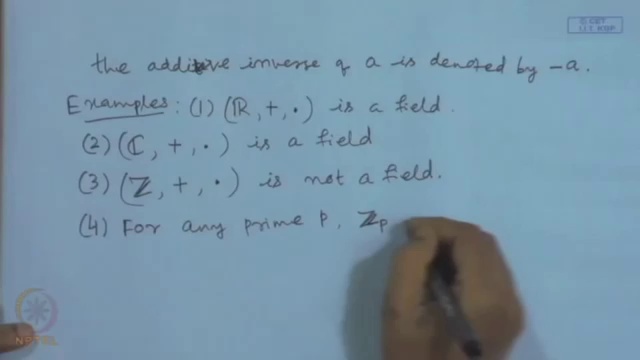 the additive inverse of a is denoted by -a.
Examples: (1) (ℝ, +, ·) is a field.
(2) (ℂ, +, ·) is a field
(3) (ℤ, +, ·) is not a field.
(4) For any prime p, ℤp
NPTEL